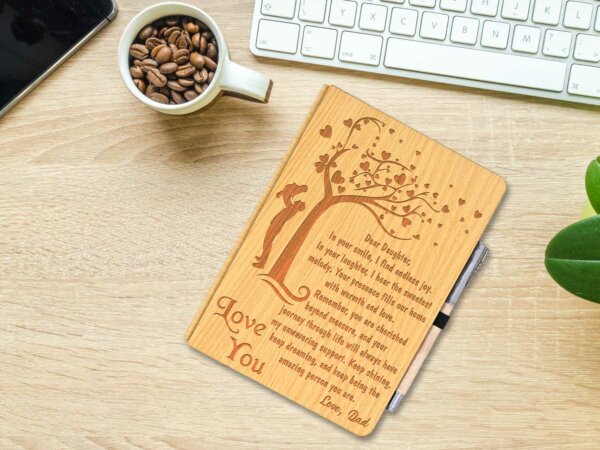 Dear Daughter,
In your smile, I find endless joy.
In your laughter, I hear the sweetest
melody. Your presence fills our home
with warmth and love.
Remember, you are cherished
beyond measure, and your
journey through life will always have
my unwavering support. Keep shining,
keep dreaming, and keep being the
amazing person you are.
Love, Dad
Love
You